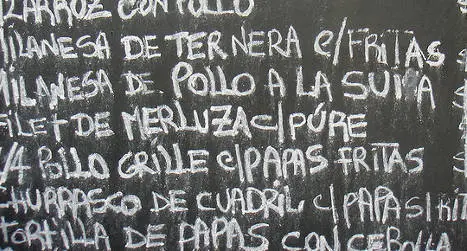 ARROZ CON POLLO
MILANESA DE TERNERA C/FRITAS
MILANESA DE POLLO A LA SUIVA
FILET DE MERLUZA C/PÚRE
1/4 POLLO GRILLE C/PAPAS FRITAS
CHURRASCO DE CUADRIL C/PAPAS
TORTILLA DE PAPAS CON CEBOLLA